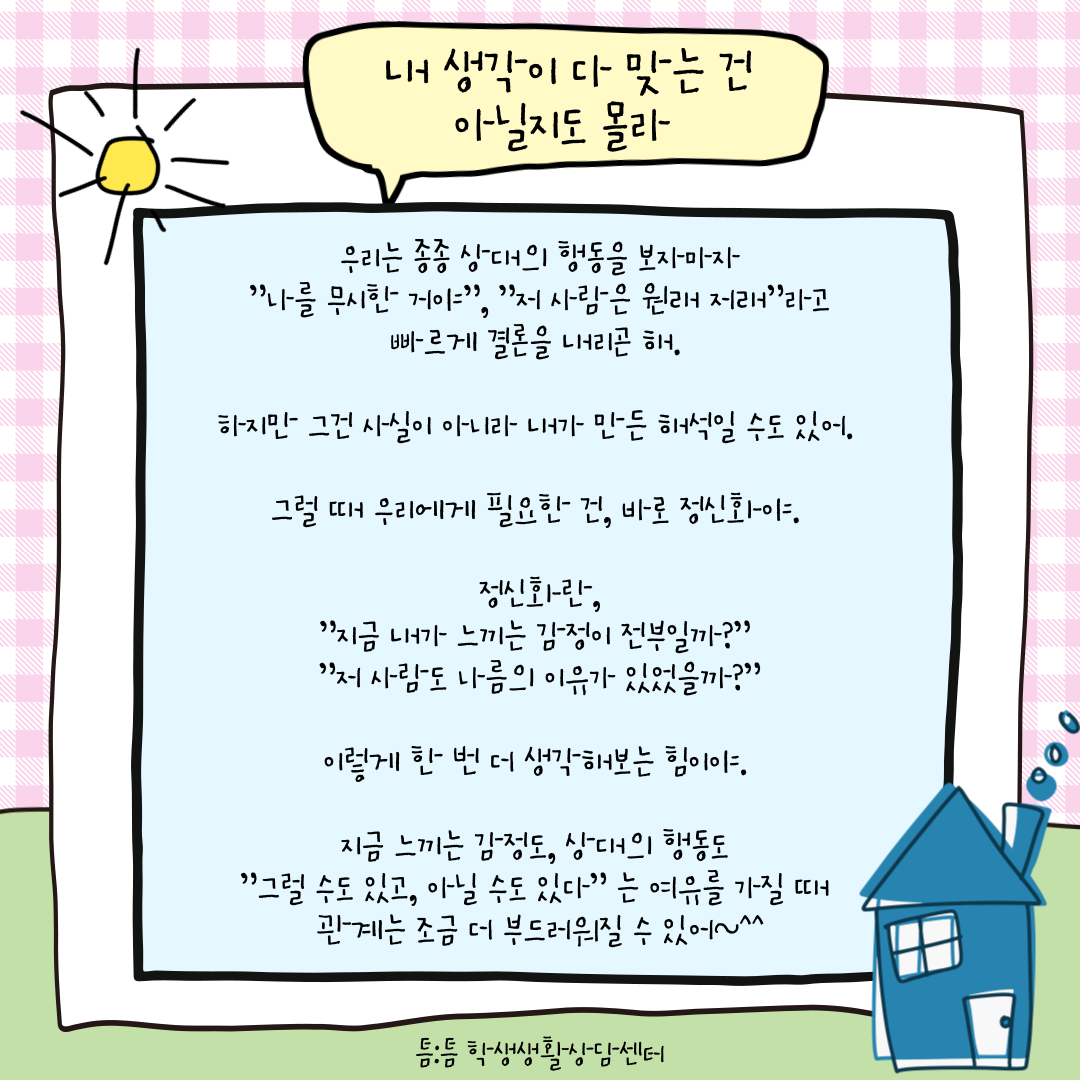 내 생각이 다 맞는 건
아닐지도 몰라
우리는 종종 상대의 행동을 보자마자
"나를 무시한 거야", "저 사람은 원래 저래"라고
빠르게 결론을 내리곤 해.
하지만 그건 사실이 아니라 내가 만든 해석일 수도 있어.
그럴 때 우리에게 필요한 건, 바로 정신화야.
정신화란,
"지금 내가 느끼는 감정이 전부일까?"
"저 사람도 나름의 이유가 있었을까?"
이렇게 한 번 더 생각해보는 힘이야.
지금 느끼는 감정도, 상대의 행동도
"그럴 수도 있고, 아닐 수도 있다" 는 여유를 가질 때
관계는 조금 더 부드러워질 수 있어~^^
틈:틈 학생생활상담센터